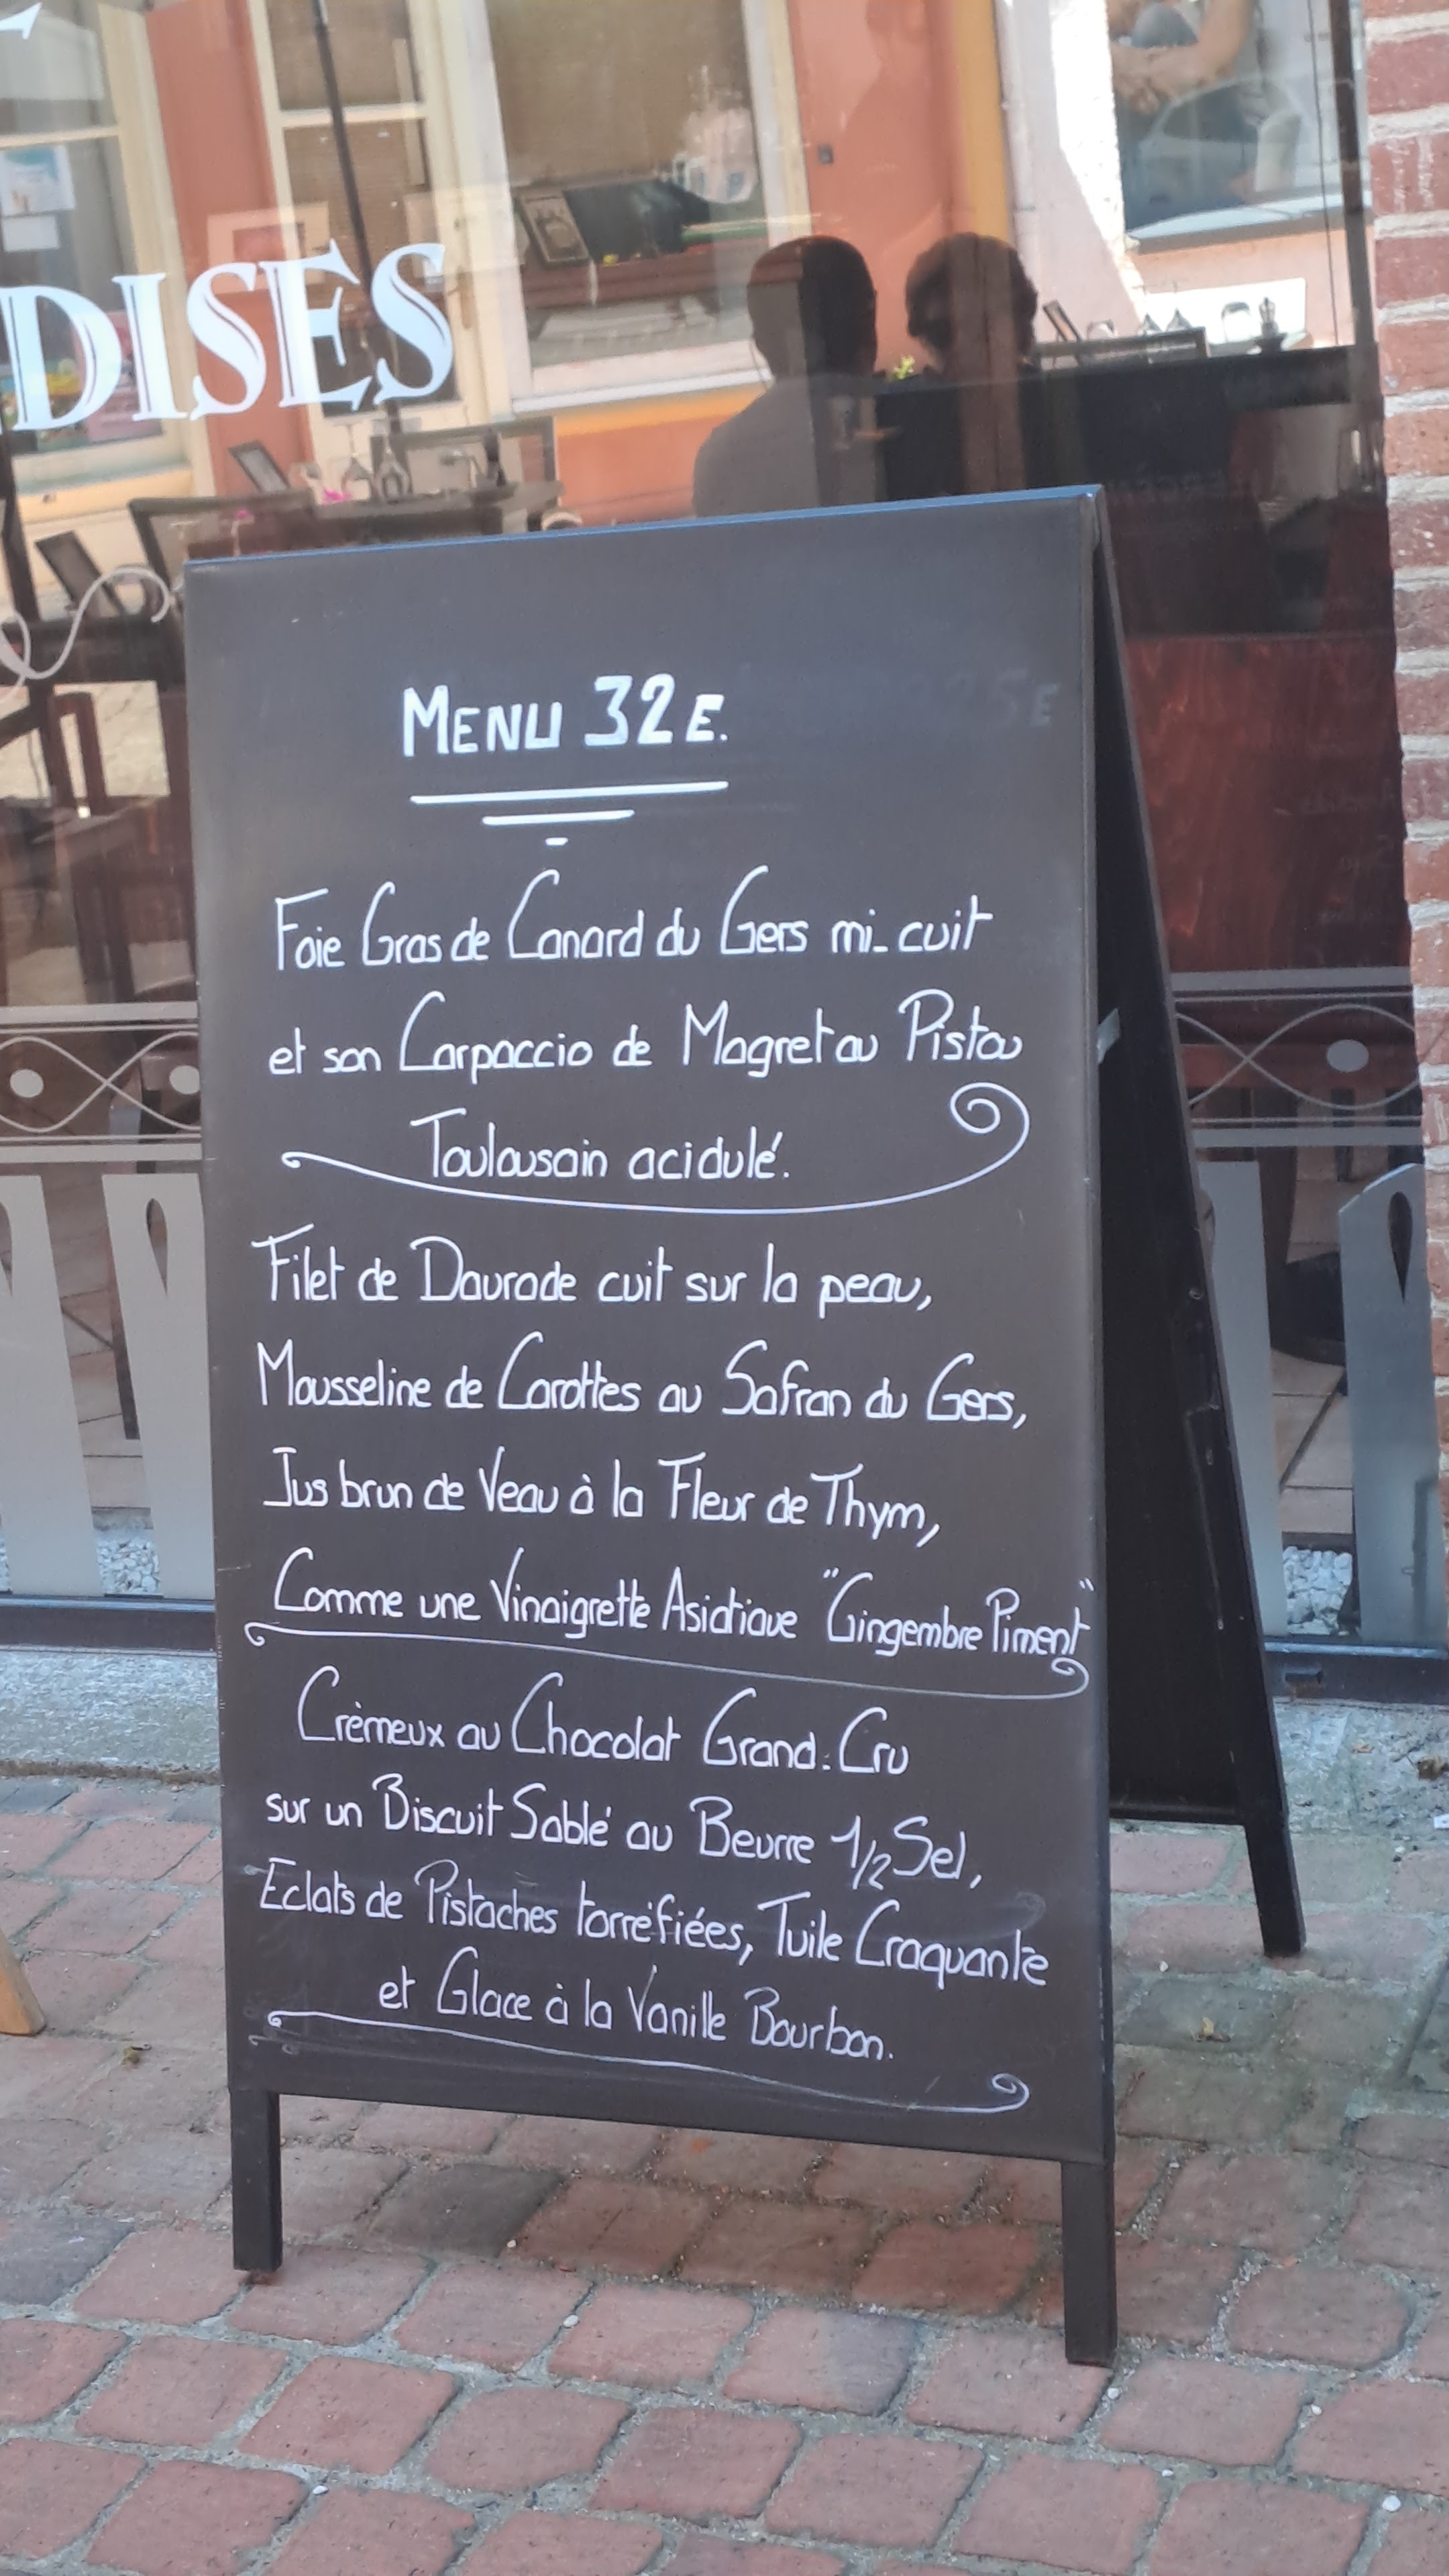 DISES
MENU 32E.
Foie Gras de Canard du Gers mi-cuit
et son Carpaccio de Magret au Pistou
Toulousain acidulé.
Filet de Daurade cuit sur la peau,
Mousseline de Carottes au Safran du Gers,
Jus brun de Veau à la Fleur de Thym,
Comme une Vinaigrette Asiatique "Gingembre Piment"
Crèmeux au Chocolat Grand-Cru
sur un Biscuit Sablé au Beurre 1/2 Sel,
Eclats de Pistaches torréfiées, Tuile Craquante
et Glace à la Vanille Bourbon.